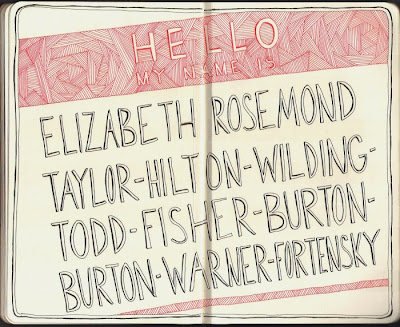 HELLO
MY NAME IS
ELIZABETH ROSEMOND
TAYLOR-HILTON-WILDING-
TODD-FISHER-BURTON-
BURTON-WARNER-FORTENSKY